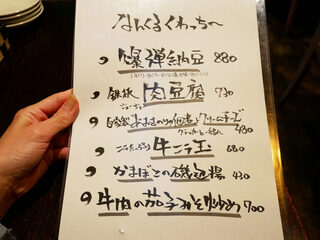 なんくるくわっちー
爆弾納豆 880
鉄板 肉豆腐 730
クリームチーズ
クラッカーと一緒に 480
ニラたっぷり 牛ニラ玉 680
かまぼこの磯辺揚 430
牛肉の茄子みそ炒め 700